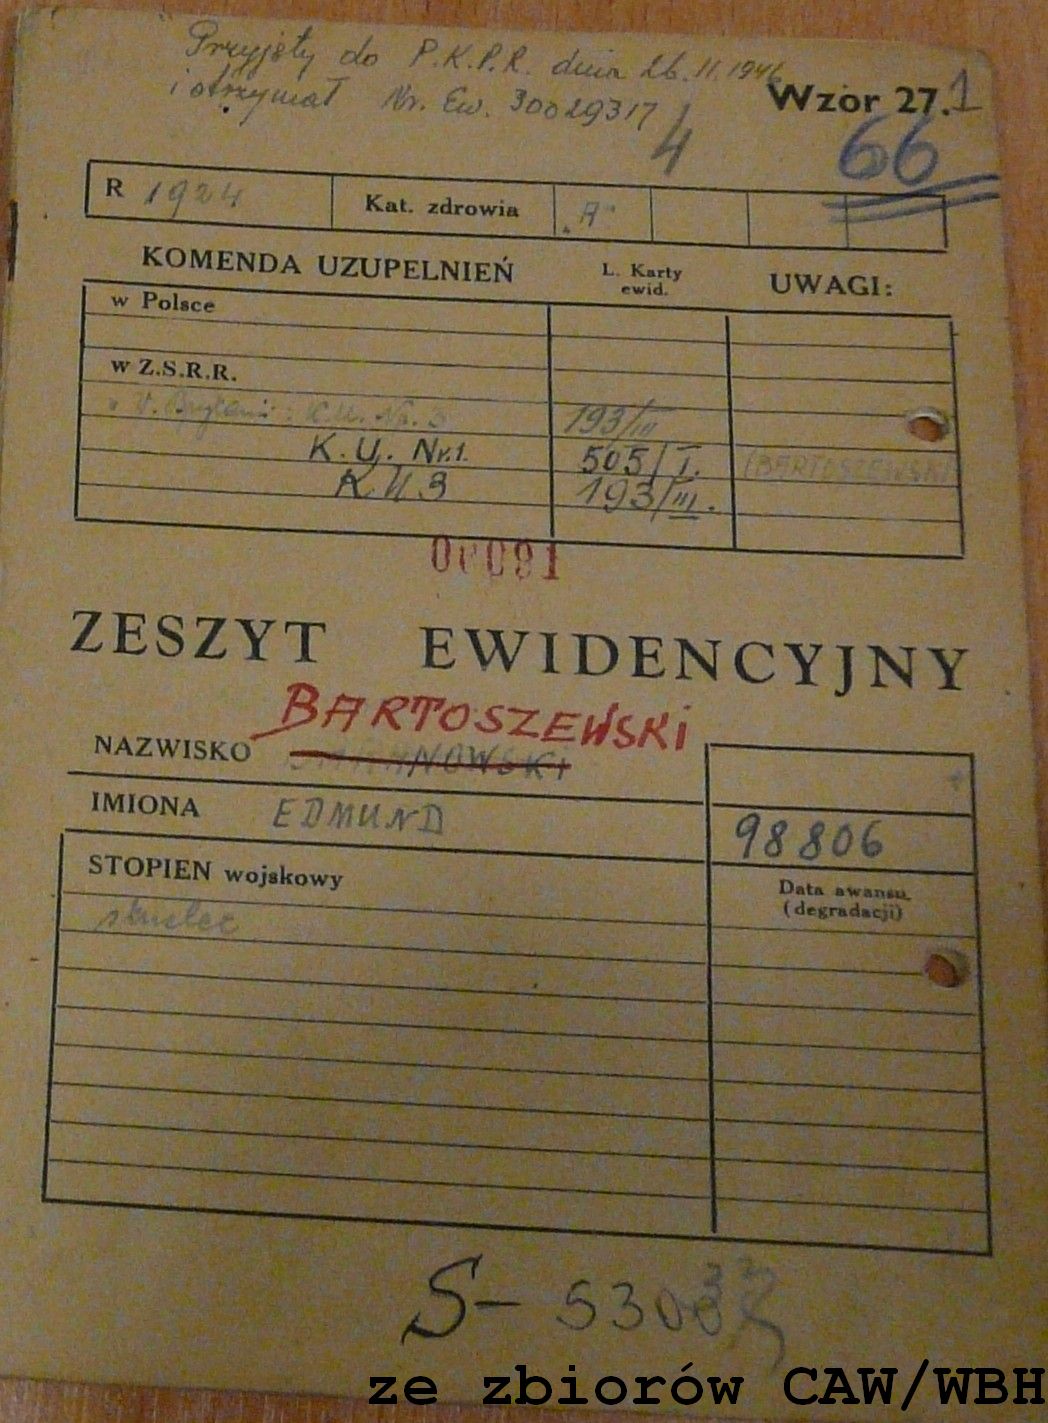 Przyjęty do P.K.P.R. dnia 26.11.1946
i otrzymał Nr. Ew. 30029317
Wzór 27. 1
4
66
R 1924 Kat. zdrowia „A"
KOMENDA UZUPEŁNIEŃ L. Karty ewid. UWAGI:
w Polsce
w Z.S.R.R.
w W. Brytanii: K.U. Nr. 3 193/III
K.U. Nr.1. 505/I. (BARTOSZEWSKI)
K U 3 193/III.
00091
ZESZYT EWIDENCYJNY
BARTOSZEWSKI
NAZWISKO
IMIONA EDMUND
98806
STOPIEN wojskowy
Data awansu
(degradacji)
strzelec
S-
ze zbiorów CAW/WBH